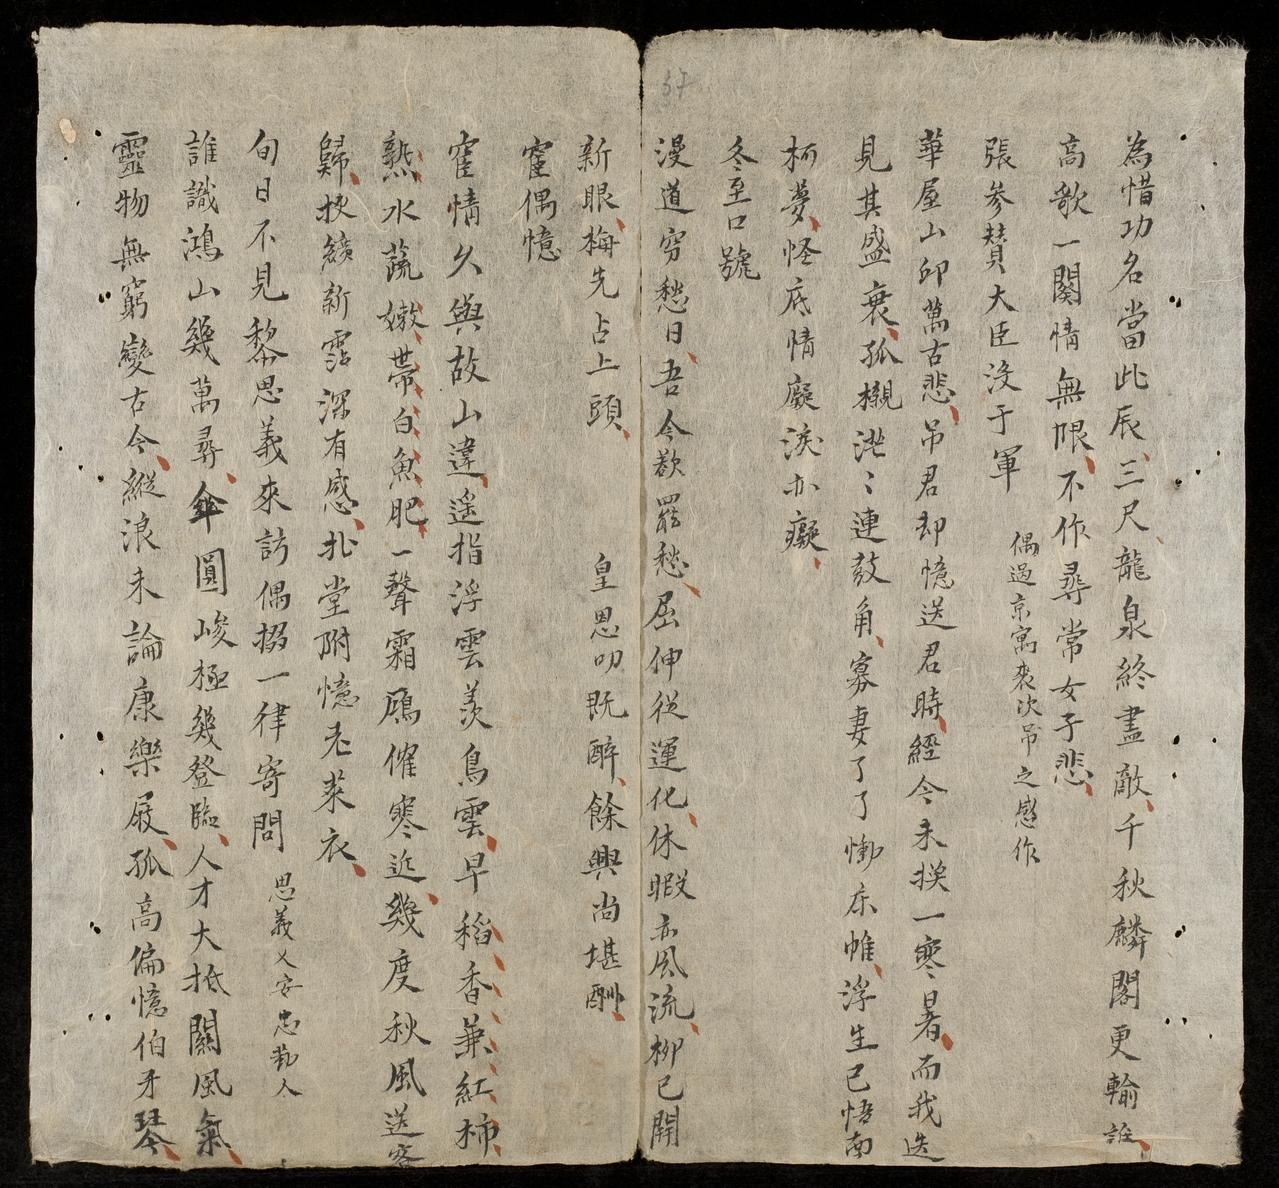 為惜功名當此辰三尺龍泉終盡敵千秋麟閣更輸誰
高歌一闋情無恨不作尋常女子悲
張參賛大臣沒于軍 偶過京寓喪次吊之感作
華屋山邱萬古悲吊君却憶送君時經今未換一寒暑而我迭
見其盛衰孤櫬茫〻連鼓角寡妻了了慟床帷浮生已悟南
柯夢怪底情癡淚亦癡
冬至口號
漫道窮愁日吾今欲罷愁屈伸從運化休暇亦風流柳已開
新眼梅先占上頭 皇恩叨既醉餘興尚堪酬
宦偶憶
宦情久與故山違遙指浮雲羨鳥雲早稻香兼紅柿
熟水蔬嫩帶白魚肥一聲霜鴈催寒近幾度秋風送客
歸挾纊新霑深有感北堂附憶老萊衣
旬日不見黎思義來訪偶掇一律寄問 思義乂安忠勤人
誰識鴻山幾萬尋傘圓峻極幾登臨人才大抵關風氣
靈物無窮變古今縱浪未論康樂屐孤高偏憶伯牙琴